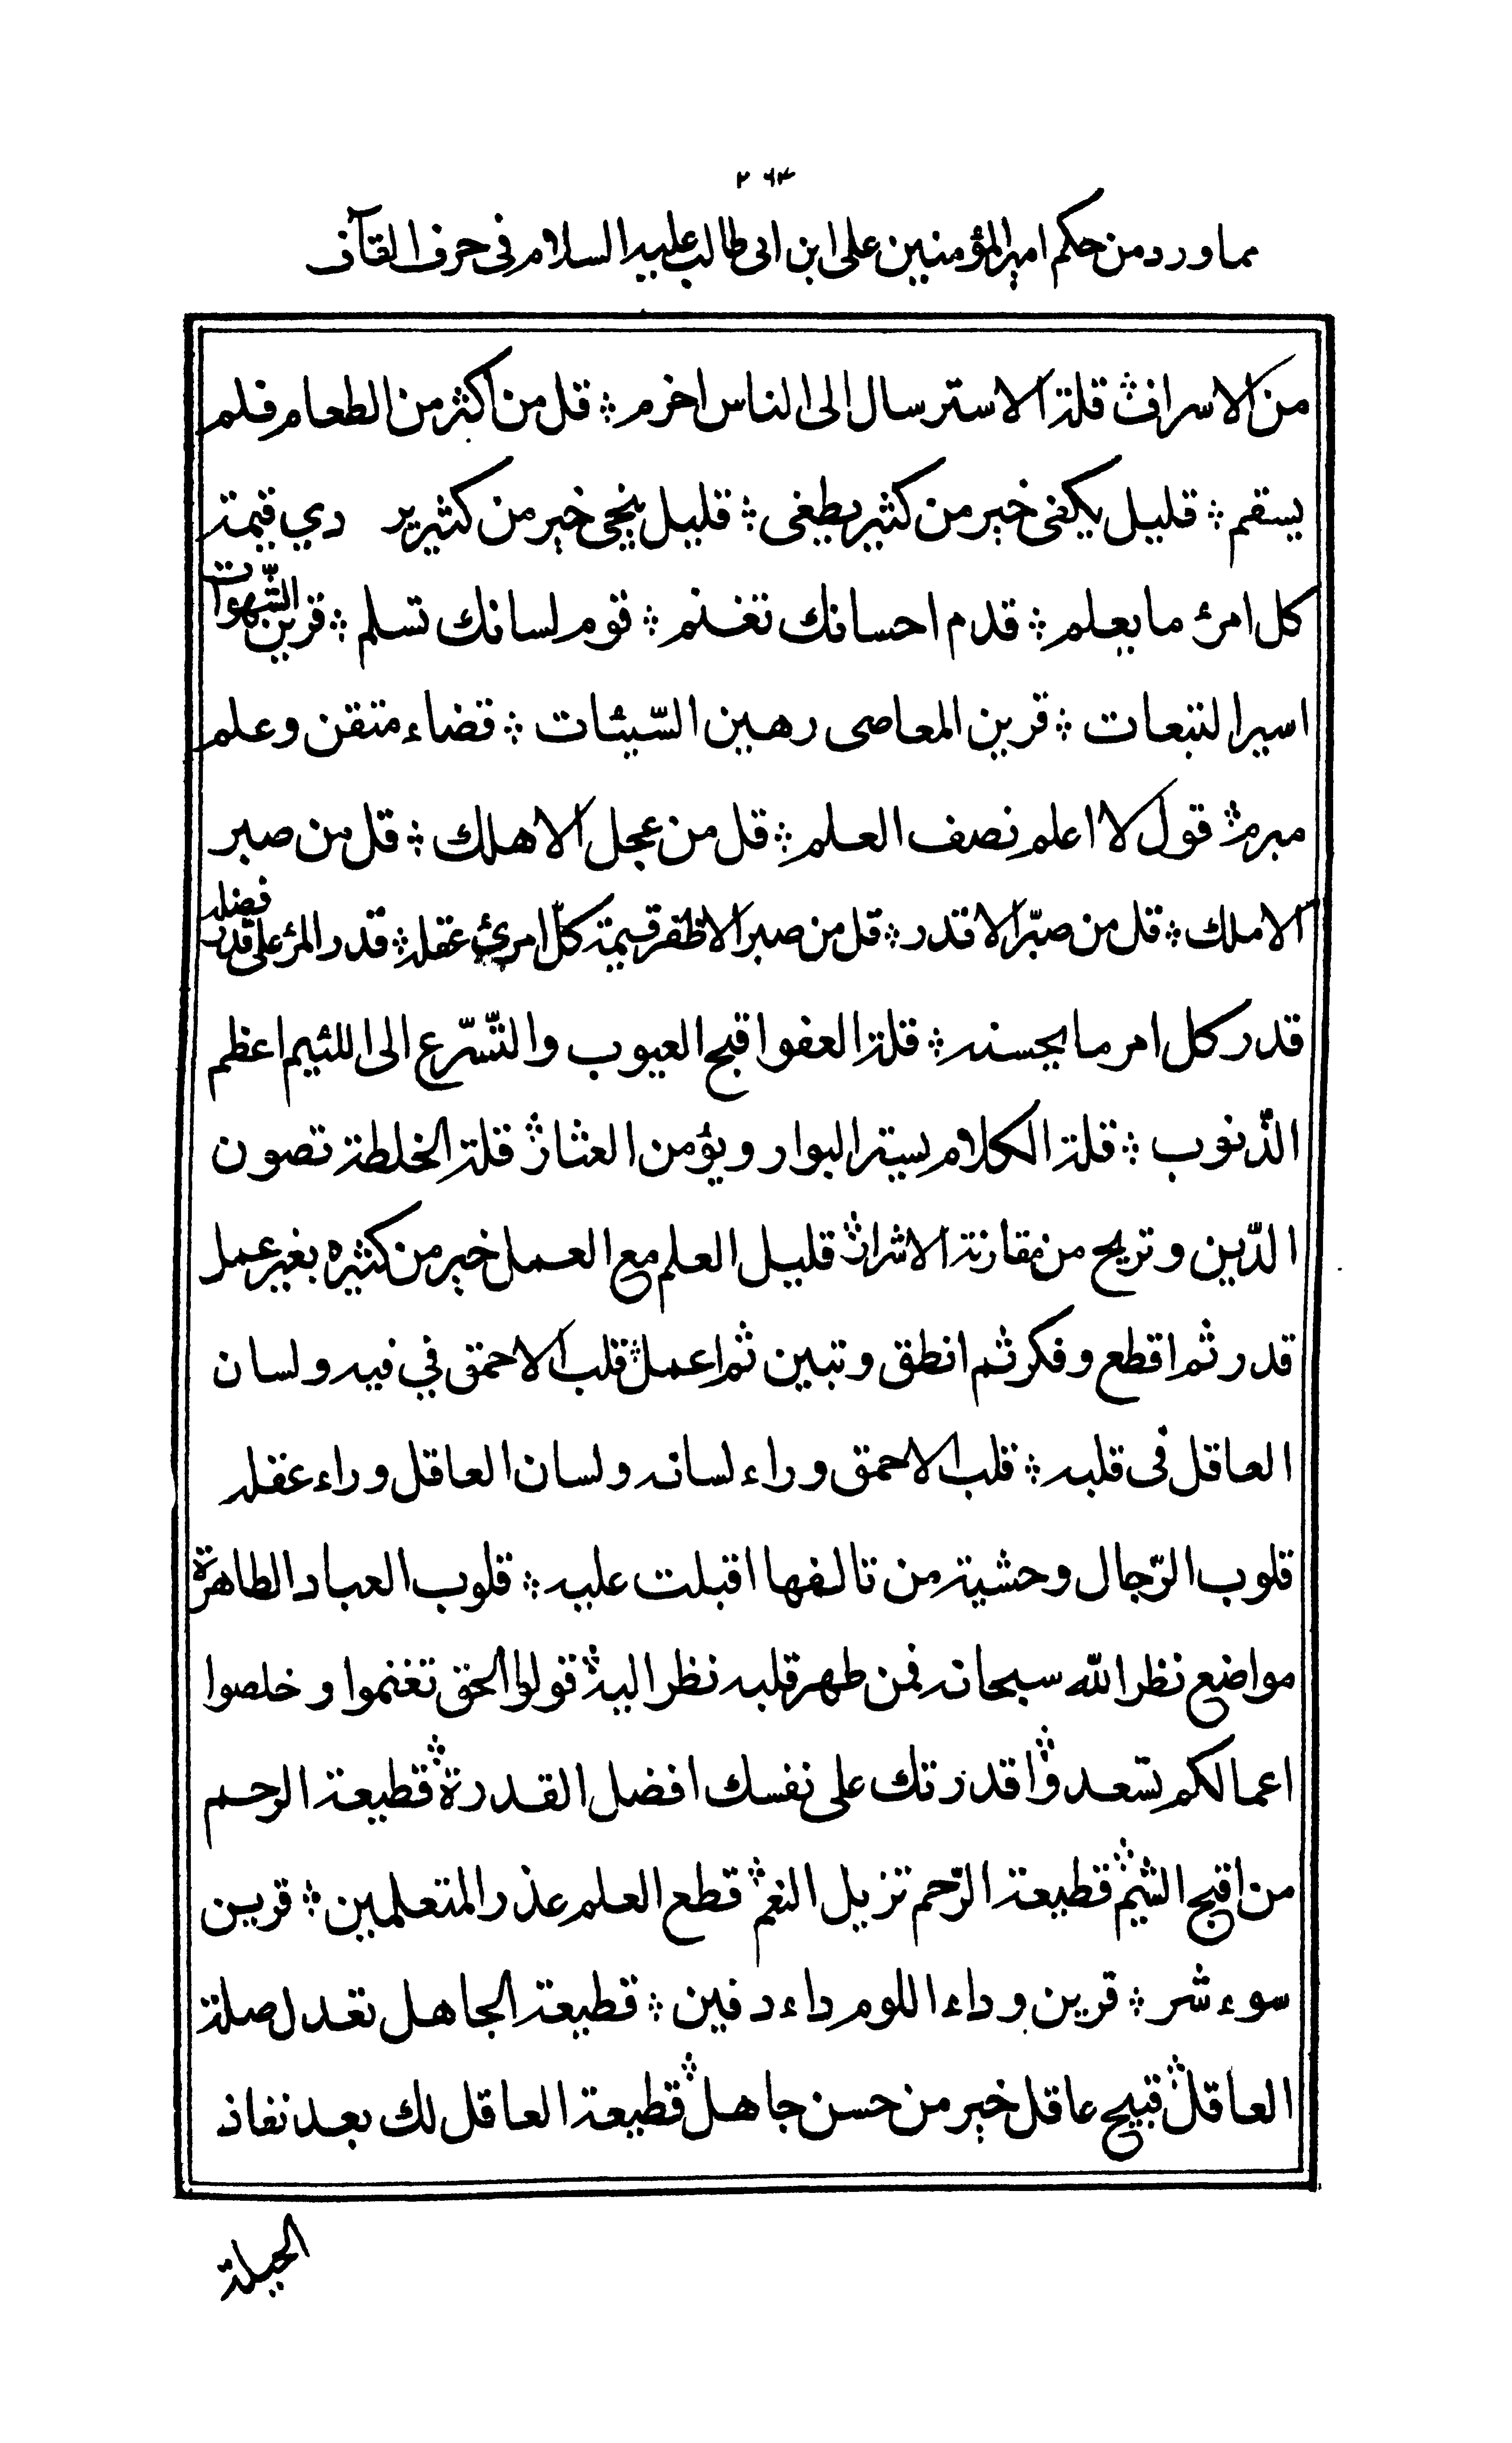 ٢٦٣
مما ورد من حكم امير المؤمنين علي ابن ابي طالب عليه السلام في حرف القآف
من الاسراف ؞ قلة الاسترسال الى الناس احزم ؞ قل من اكثر من الطعام فلم
يسقم ؞ قليل يكفى خير من كثير يطغى ؞ قليل ينجى خير من كثير ير دي قيمة
كل امرئ ما يعلم ؞ قدم احسانك تغنم ؞ قوم لسانك تسلم ؞ قرين الشّهوات
اسير التبعات ؞ قرين المعاصى رهين السّيئات ؞ قضاء متقن وعلم
مبرم ؞ قول لا اعلم نصف العلم ؞ قل من عجل الا هلك ؞ قل من صبر
الا ملك ؞ قل من صبّر الا قدر ؞ قل من صبر الا ظفر قيمة كلّ امرئ عقله ؞ قدر المرء على قدر فضله
قدر كل امر ما يحسنه ؞ قلة العفو اقبح العيوب والتّسّرع الى اللئيم اعظم
الذّنوب ؞ قلة الكلام يستر البوار ويؤمن العثار ؞ قلة الخلطة تصون
الدّين وتريح من مقارنة الاشرار ؞ قليل العلم مع العمل خير من كثيره بغير عمل
قدر ثم اقطع وفكر ثم انطق وتبين ثم اعمل ؞ قلب الاحمق في فيه ولسان
العاقل فى قلبه ؞ قلب الاحمق وراء لسانه ولسان العاقل وراء عقله
قلوب الرّجال وحشية من تالفها اقبلت عليه ؞ قلوب العباد الطاهرة
مواضع نظر الله سبحانه فمن طهر قلبه نظر اليه ؞ قولوا الحق تغنموا و خلصوا
اعمالكم تسّعدوا ؞ قدرتك على نفسك افضل القدرة ؞ قطيعة الرحم
من اقبح الشيم ؞ قطيعة الرّحم تزيل النعم ؞ قطع العلم عذر المتعلمين ؞ قرين
سوء شر ؞ قرين وداء اللوم داء دفين ؞ قطيعة الجاهل تعدل صلة
العاقل ؞ قبيح عاقل خير من حسن جاهل ؞ قطيعة العاقل لك بعد نفاذ
الحيلة